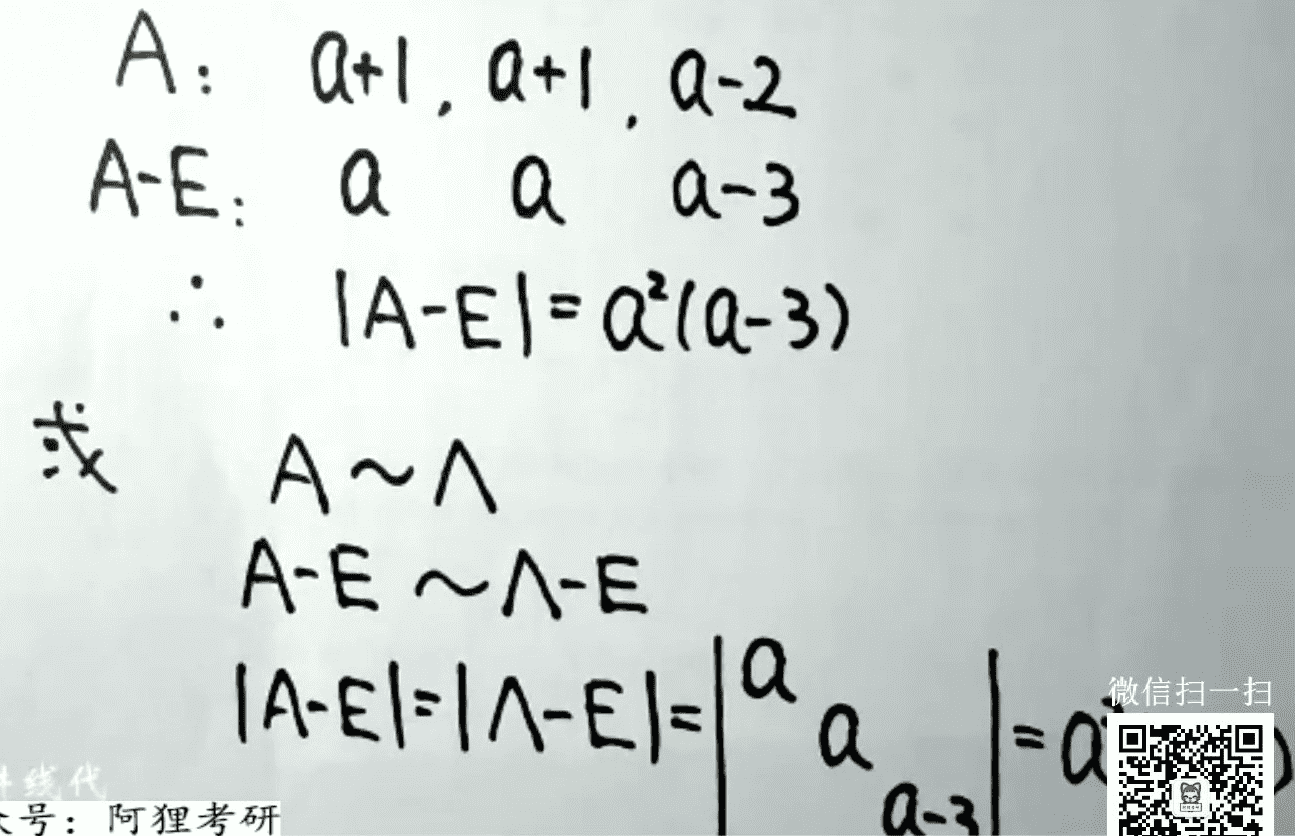 A: a+1, a+1, a-2
A-E: a a a-3
∴ |A-E|=a²(a-3)
或 A~Λ
A-E ~ Λ-E
|A-E|=|Λ-E|=|a a a-3|=a
微信扫一扫
线代
号：阿狸考研